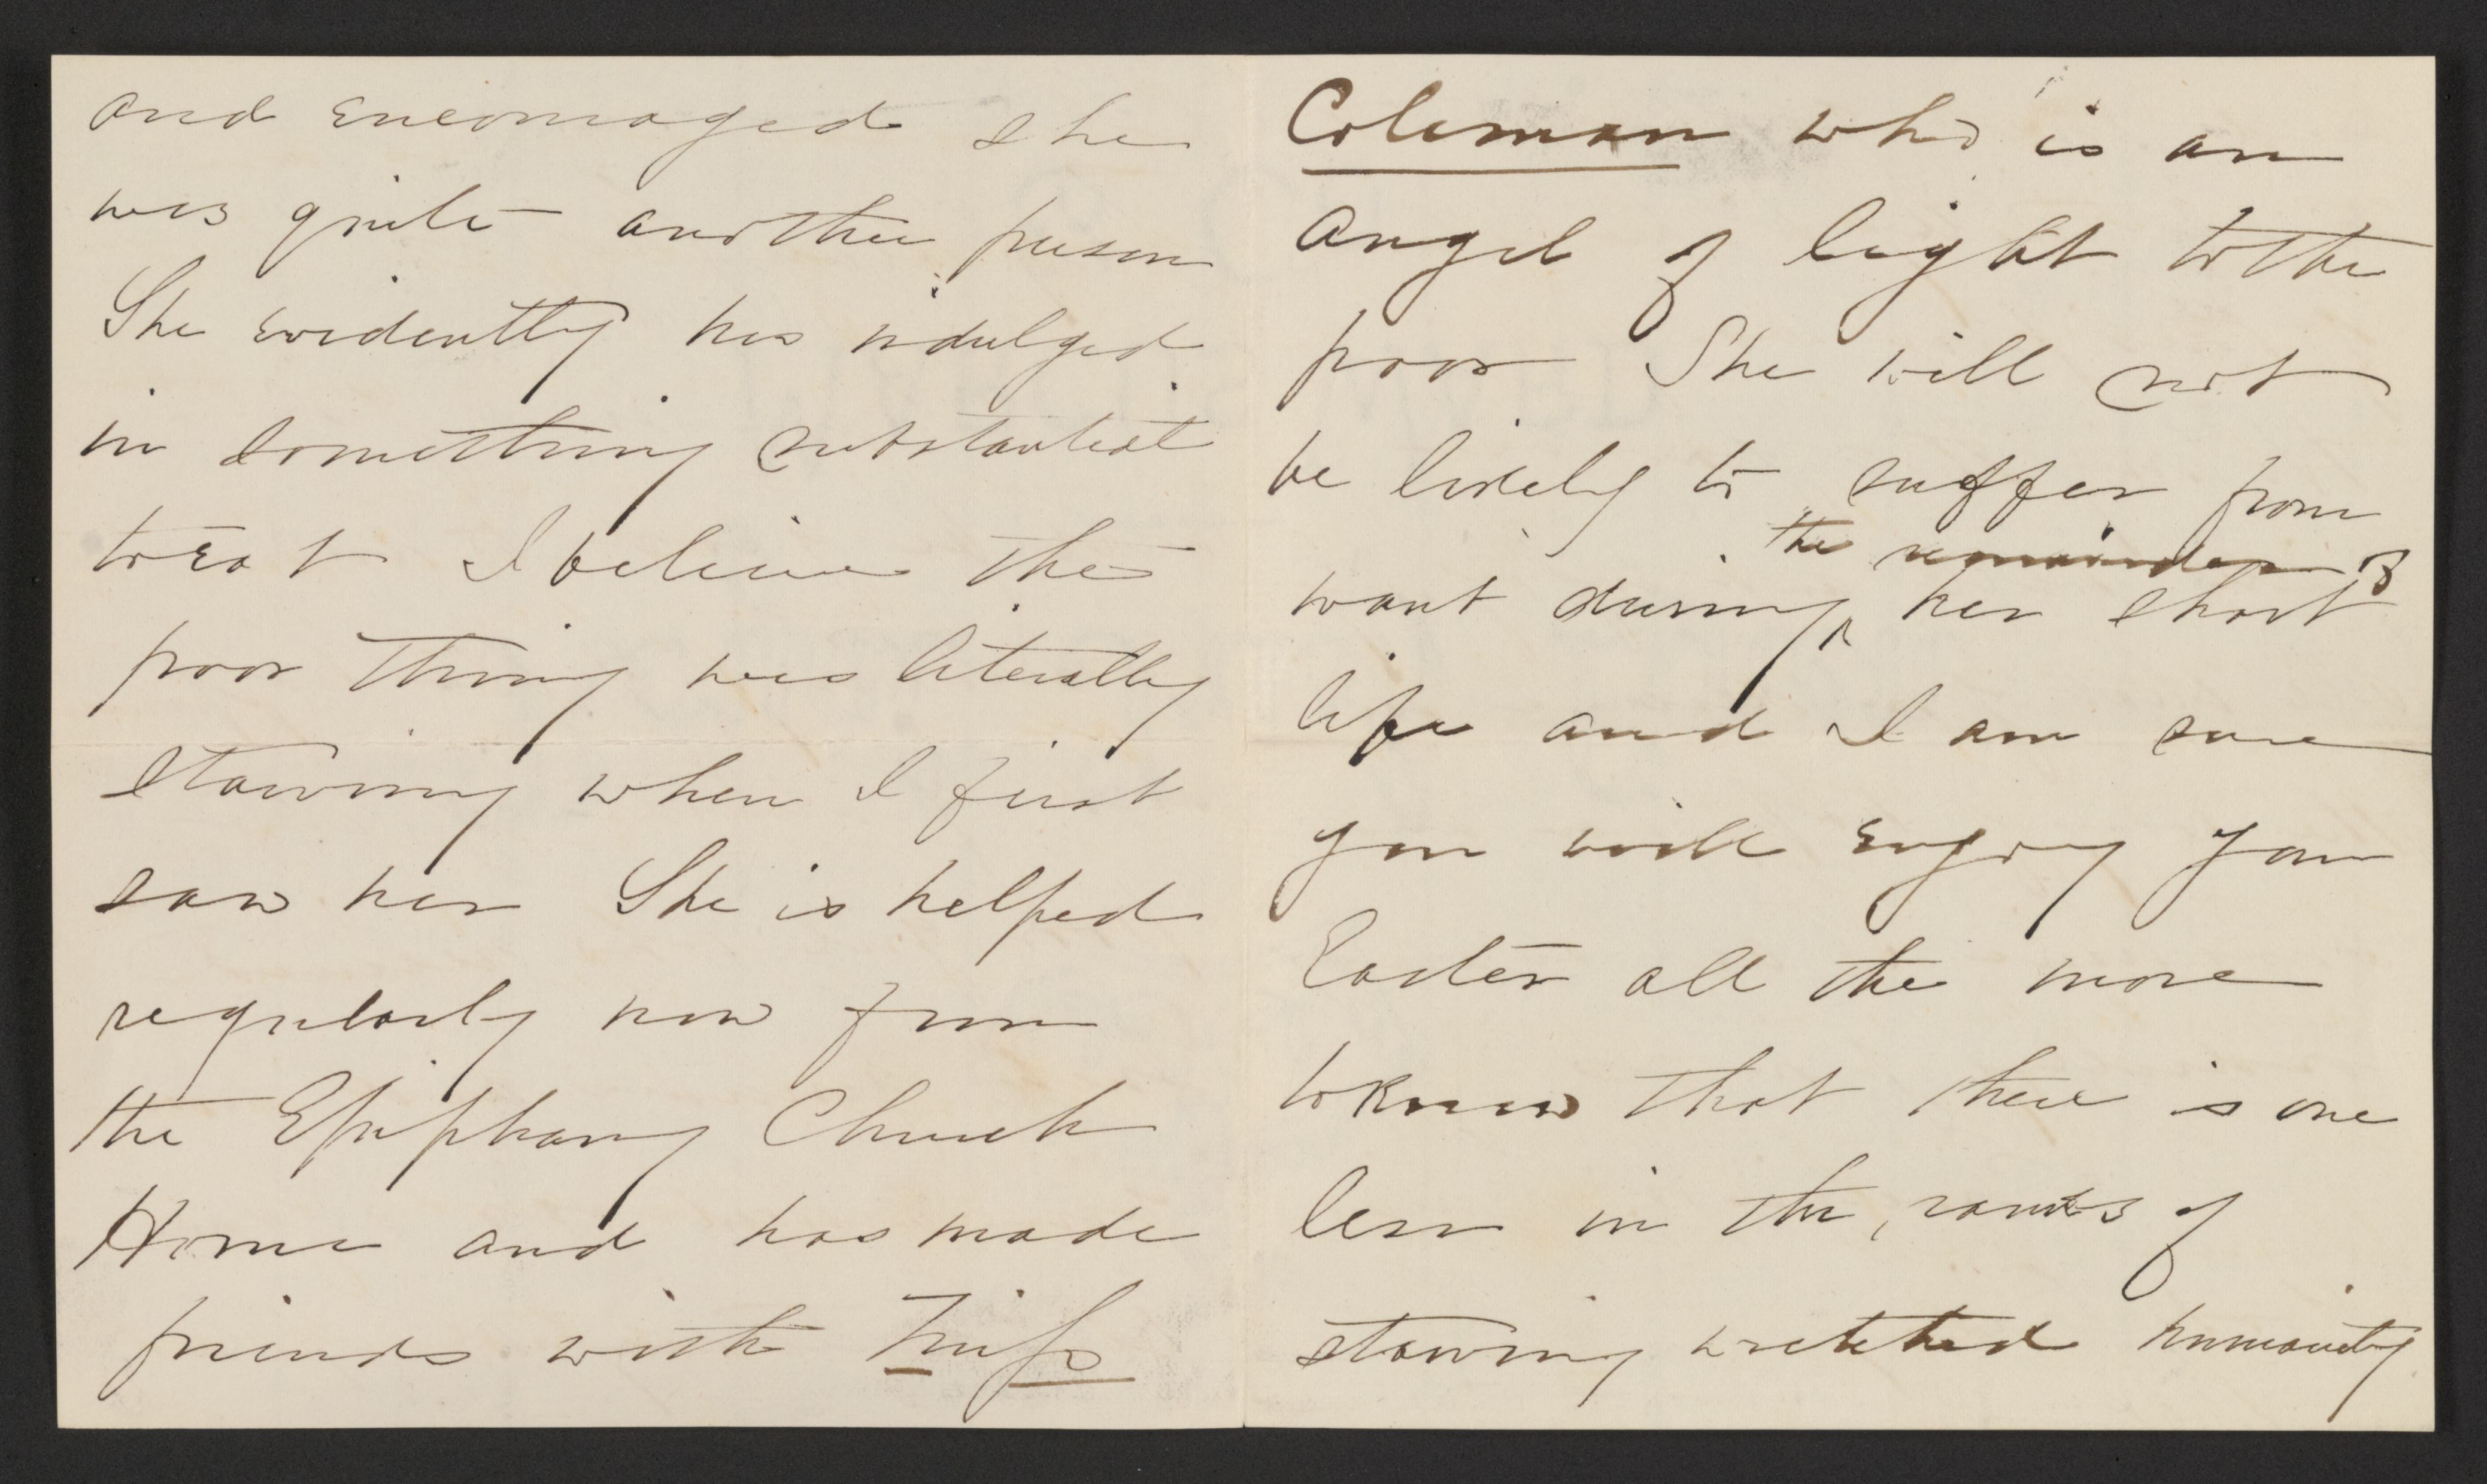 and encouraged she
was quite another person
She evidently has indulged
in something substantial
to eat I believe the
poor thing was literally
starving when I first
saw her She is helped
regularly now from
the Epiphany Church
Home and has made
friends with Miss
Coleman who is an
angel of light to the
poor She will not
be likely to suffer from
the remainder of
want during ^ her short
life and I am sure
you will enjoy your
Easter all the more
to know that there is one
less in the ranks of
starving wretched humanity